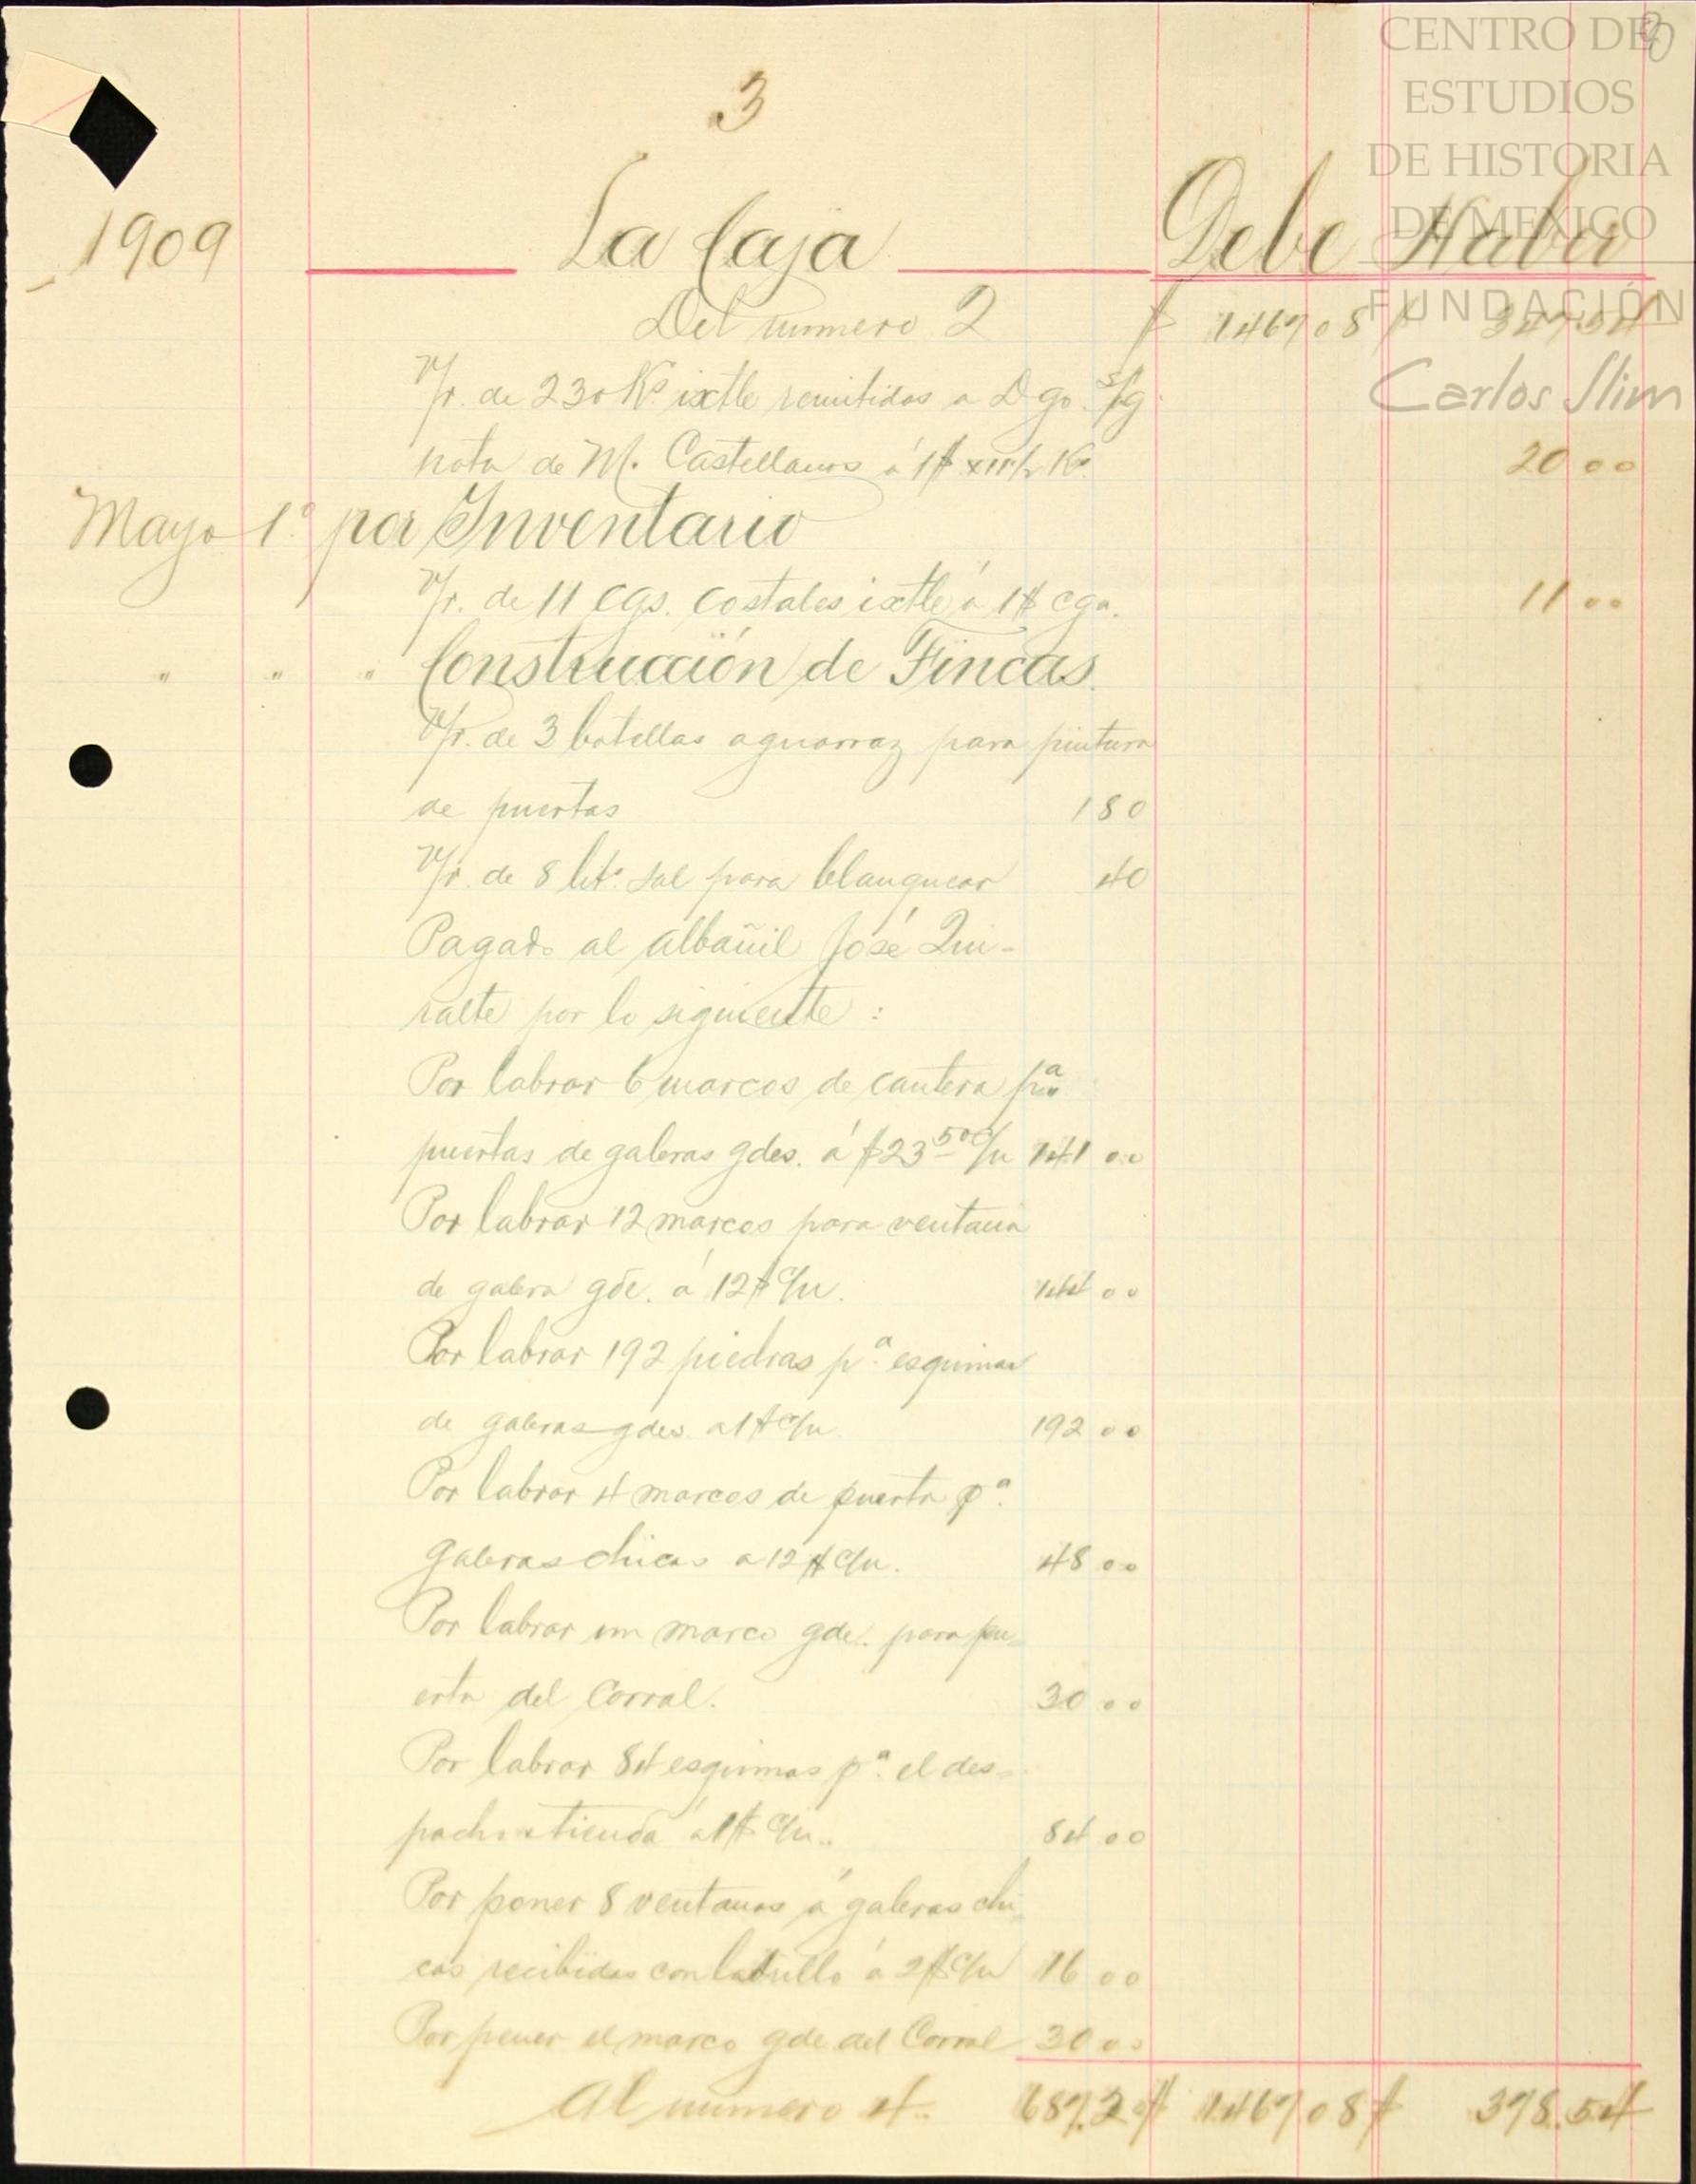 CENTRO DE
ESTUDIOS
DE HISTORIA
DE MEXICO
FUNDACIÓN
Carlos Slim
3
1909 La Caja Debe Haber
Del numero 2 $ 1467 08 $ 347.54
Vr. de 230 Ks. ixtle remitidos a Dgo. s/g
nota de M. Castellanos á 1$ K. 20 00
Mayo 1º por Inventario
Vr. de 11 cgs. costales ixtle á 1$ cga. 11 00
" " " Construcción de Fincas.
Vr. de 3 botellas aguarraz para pintura
de puertas 1 80
Vr. de 8 lits. sal para blanquear 40
Pagado al albañil José Qui-
ralte por lo siguiente:
Por labrar 6 marcos de cantera pª
puertas de galeras gdes. á $23 50 c/u 141 00
Por labrar 12 marcos para ventana
de galera gde. á 12$ c/u. 144 00
Por labrar 192 piedras pª. esquinas
de galeras gdes. a 1$ c/u 192 00
Por labrar 4 marcos de puerta pª.
galeras chicas a 12$ c/u. 48 00
Por labrar un marco gde. para pu-
erta del Corral. 30 00
Por labrar 84 esquinas pª. el des-
pacho tienda á 1$ c/u.. 84 00
Por poner 8 ventanas á galeras chi-
cas recibidas con ladrillo á 2$ c/u 16 00
Por poner el marco gde. del Corral 30 00
Al numero 4.. 687.20 $ 1467 08 $ 378.54